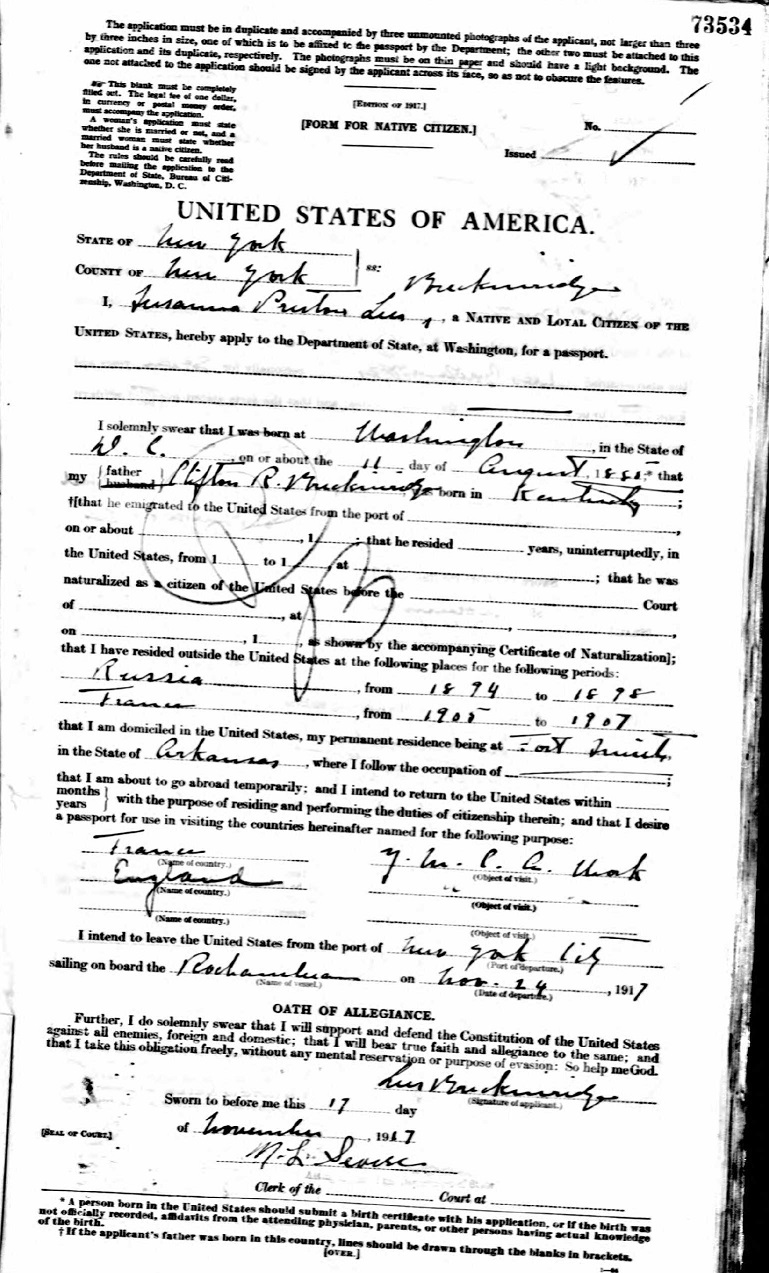 73534
The application must be in duplicate and accompanied by three unmounted photographs of the applicant, not larger than three
by three inches in size, one of which is to be affixed to the passport by the Department; the other two must be attached to this
application and its duplicate, respectively. The photographs must be on thin paper and should have a light background. The
one not attached to the application should be signed by the applicant across its face, so as not to obscure the features.
This blank must be completely
filled out. The legal fee of one dollar,
in currency or postal money order,
must accompany the application.
A woman's application must state
whether she is married or not, and a
married woman must state whether
her husband is a native citizen.
The rules should be carefully read
before mailing the application to the
Department of State, Bureau of Citi-
zenship, Washington, D. C.
[EDITION OF 1917.]
[FORM FOR NATIVE CITIZEN.]
No.
Issued
UNITED STATES OF AMERICA.
STATE OF New York
COUNTY OF New York ss: Breckinridge
I, Susanna Preston Lees, a NATIVE AND LOYAL CITIZEN OF THE
UNITED STATES, hereby apply to the Department of State, at Washington, for a passport.
I solemnly swear that I was born at Washington, in the State of
D. C., on or about the 11 day of August, 1885;* that
my {father husband} Clifton R. Breckinridge born in Kentucky;
†[that he emigrated to the United States from the port of
on or about , 1 ; that he resided years, uninterruptedly, in
the United States, from 1 to 1 , at ; that he was
naturalized as a citizen of the United States before the Court
of , at ,
on , 1 , as shown by the accompanying Certificate of Naturalization];
that I have resided outside the United States at the following places for the following periods:
Russia, from 1894 to 1898
France, from 1905 to 1907
that I am domiciled in the United States, my permanent residence being at Fort Smith,
in the State of Arkansas, where I follow the occupation of ;
that I am about to go abroad temporarily; and I intend to return to the United States within
{months years} with the purpose of residing and performing the duties of citizenship therein; and that I desire
a passport for use in visiting the countries hereinafter named for the following purpose:
France Y. M. C. A. Work
(Name of country.) (Object of visit.)
England " "
(Name of country.) (Object of visit.)
(Name of country.) (Object of visit.)
I intend to leave the United States from the port of New York City
(Port of departure.)
sailing on board the Rochambeau on Nov. 24, 1917
(Name of vessel.) (Date of departure.)
OATH OF ALLEGIANCE.
Further, I do solemnly swear that I will support and defend the Constitution of the United States
against all enemies, foreign and domestic; that I will bear true faith and allegiance to the same; and
that I take this obligation freely, without any mental reservation or purpose of evasion: So help me God.
Lees Breckinridge
(Signature of applicant.)
Sworn to before me this 17 day
of November, 1917
[SEAL OF COURT.]
Clerk of the Court at
* A person born in the United States should submit a birth certificate with his application, or if the birth was
not officially recorded, affidavits from the attending physician, parents, or other persons having actual knowledge
of the birth.
† If the applicant's father was born in this country, lines should be drawn through the blanks in brackets.
[OVER.]